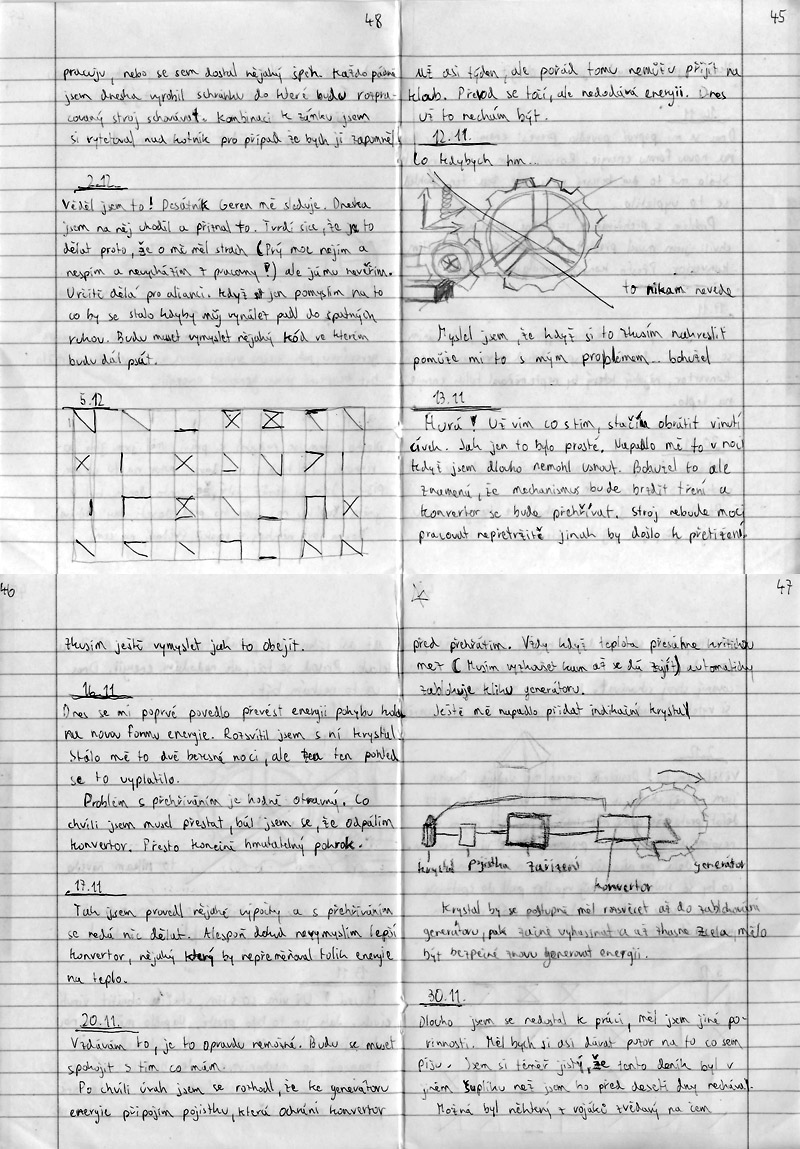 48
pracuju, nebo se sem dostal nějaký špeh. Každopádně
jsem dneska vyrobil schránku do které budu rozpra-
covaný stroj schovávat. Kombinaci k zámku jsem
si vytetoval nad kotník pro případ že bych ji zapoměl
2.12.
Věděl jsem to! Desátník Geren mě sleduje. Dneska
jsem na něj uhodil a přiznal to. Tvrdí sice, že je to
dělat proto, že o mě měl strach (Prý moc nejím a
nespím a nevycházím z pracovny!) ale já mu nevěřím.
Určitě dělá pro alianci. Když si jen pomyslím na to
co by se stalo kdyby můj vynález padl do špatných
rukou. Budu muset vymyslet nějaký kód ve kterém
budu dál psát.
5.12
45
Už asi týden, ale pořád tomu nemůžu přijít na
kloub. Převod se točí, ale nedodává energii. Dnes
už to nechám být.
12.11.
Co kdybych hm...
to nikam nevede
Myslel jsem, že když si to zkusím nakreslit
pomůže mi to s mým problémem... bohužel
13.11
Hurá! Už vím co s tím, stačí obrátit vinutí
cívek. Jak jen to bylo prosté. Napadlo mě to v noci
když jsem dlouho nemohl usnout. Bohužel to ale
znamená, že mechanismus bude brzdit tření a
konvertor se bude přehřívat. Stroj nebude moci
pracovat nepřetržitě jinak by došlo k přetížení.
46
Zkusím ještě vymyslet jak to obejít.
16.11
Dnes se mi poprvé povedlo převést energii pohybu kola
na novou formu energie. Rozsvítil jsem s ní krystal.
Stálo mě to dvě bezesné noci, ale ten pohled
se to vyplatilo.
Problém s přehříváním je hodně otravný. Co
chvíli jsem musel přestat, bál jsem se, že odpálím
konvertor. Přesto konečně hmatatelný pokrok.
17.11
Tak jsem provedl nějaké výpočty a s přehříváním
se nedá nic dělat. Alespoň dokud nevymyslím lepší
konvertor, nějaký který by nepřeměňoval tolik energie
na teplo.
20.11.
Vzdávám to, je to opravdu nemožné. Budu se muset
spokojit s tím co mám.
Po chvíli úvah jsem se rozhodl, že ke generátoru
energie připojím pojistku, která ochrání konvertor
47
před přehřátím. Vždy když teplota přesáhne kritickou
mez (Musím vyzkoušet kam až se dá zajít) automaticky
zablokuje kliku generátoru.
Ještě mě napadlo přidat indikační krystal
krystal pojistka zařízení
konvertor
generátor
Krystal by se postupně měl rozsvěcet až do zablokování
generátoru, pak začne vyhasínat a až zhasne zcela, mělo
být bezpečné znovu generovat energii.
30.11.
Dlouho jsem se nedostal k práci, měl jsem jiné po-
vinnosti. Měl bych si asi dávat pozor na to co sem
píšu. Jsem si téměř jistý, že tento deník byl v
jiném šuplíku než jsem ho před deseti dny nechával.
Možná byl některý z vojáků zvědavý na čem